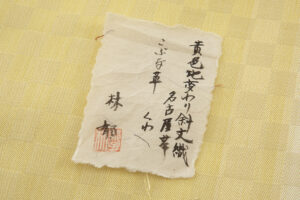 黄色地変わり斜文織
名古屋帯
くわ
こぶな草
林